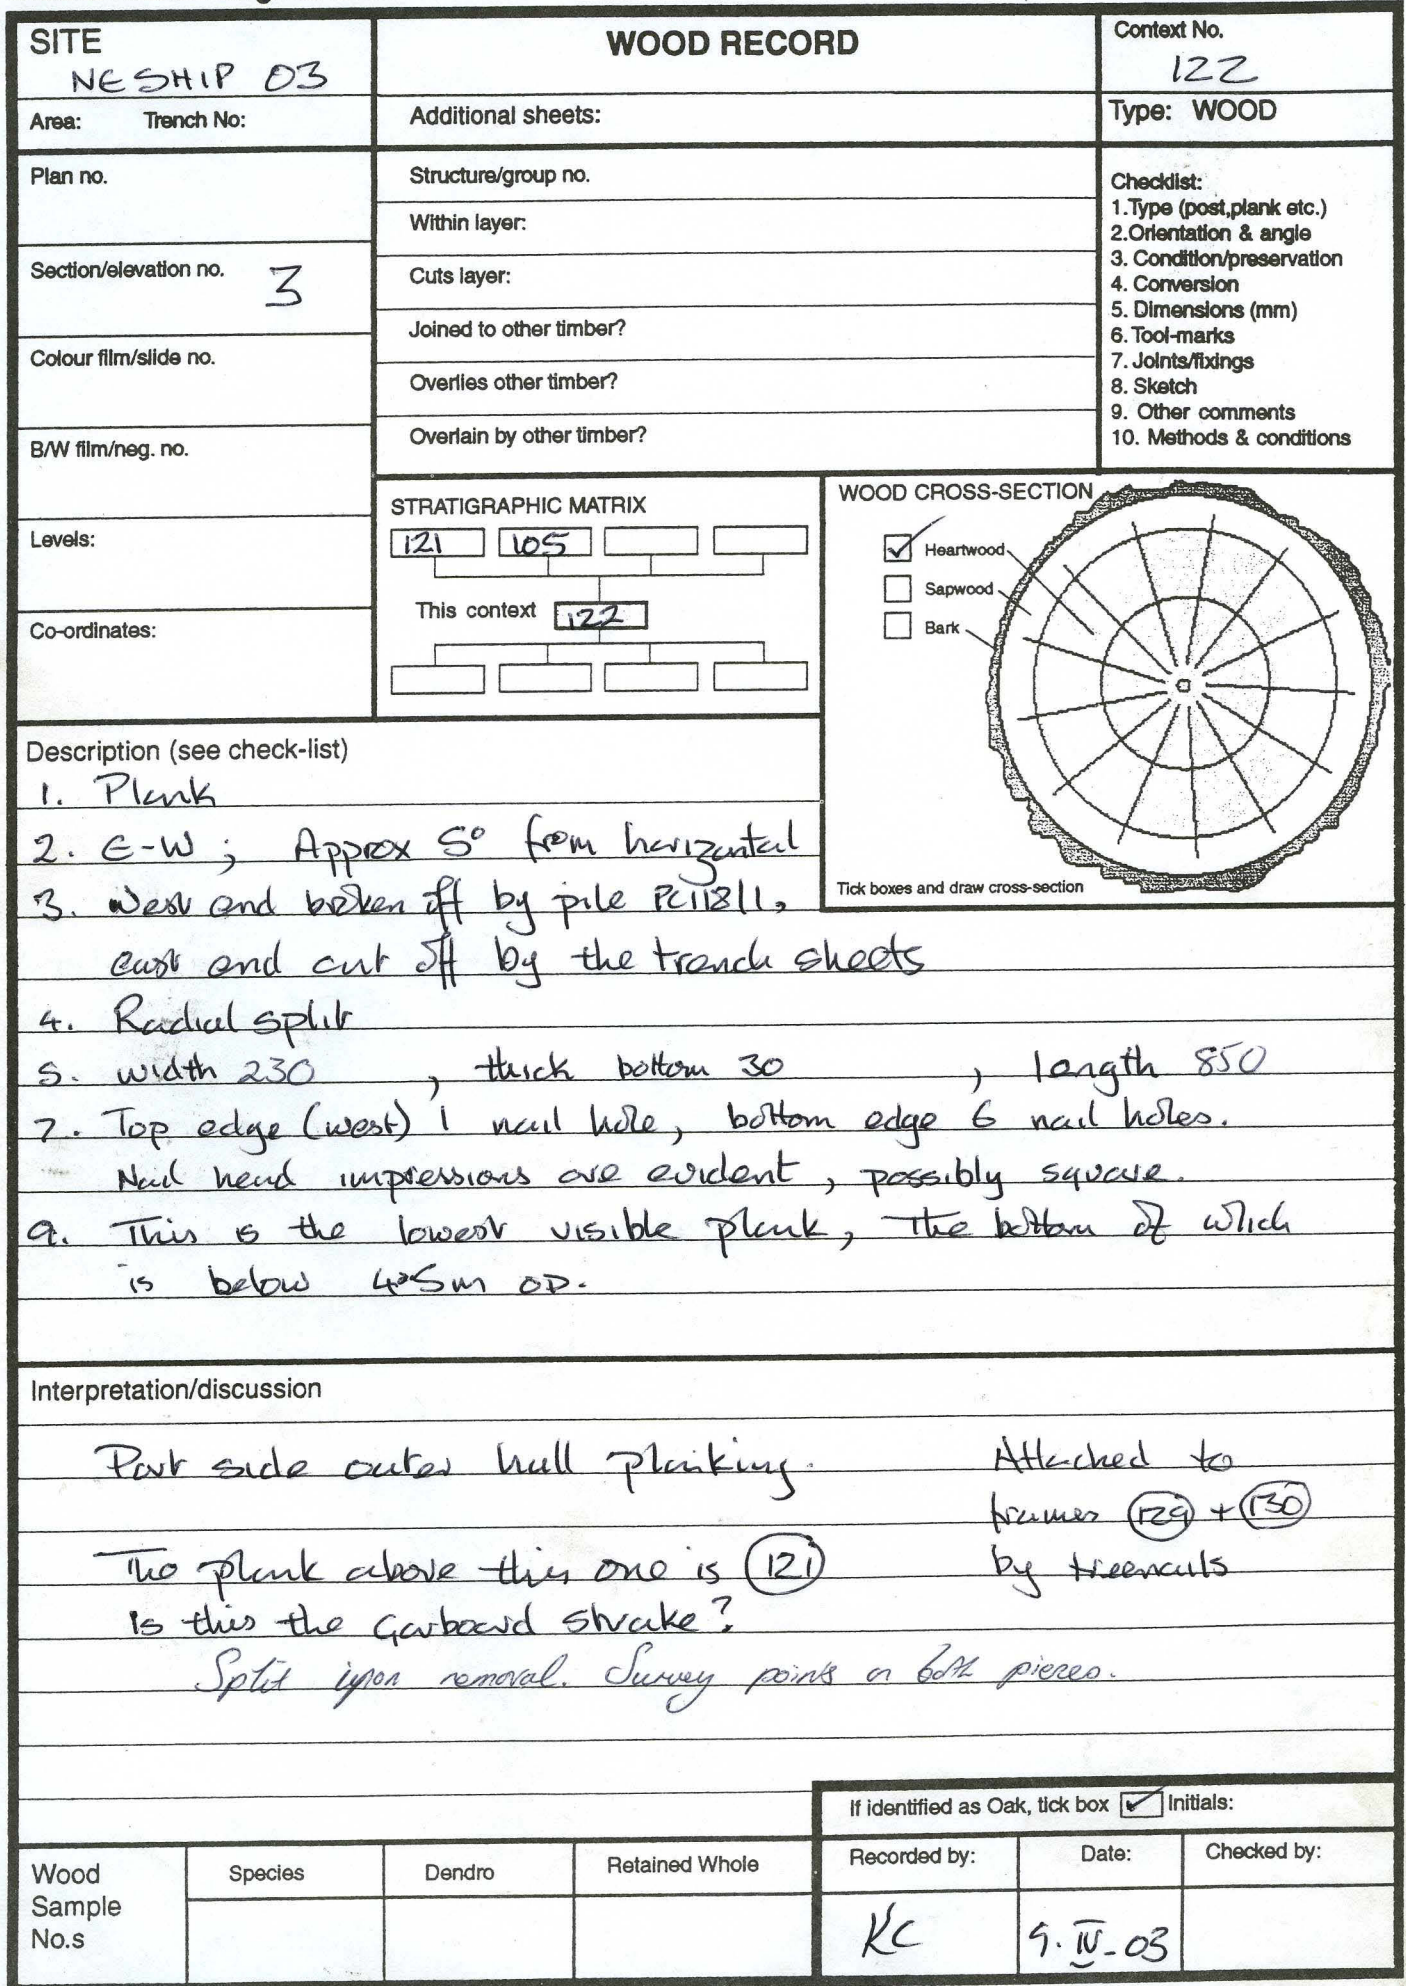 SITE
NE SHIP 03
WOOD RECORD
Context No.
122
Area: Trench No:
Additional sheets:
Type: WOOD
Plan no.
Structure/group no.
Within layer:
Section/elevation no. 3
Cuts layer:
Joined to other timber?
Colour film/slide no.
Overlies other timber?
Overlain by other timber?
B/W film/neg. no.
Checklist:
1.Type (post,plank etc.)
2.Orientation & angle
3. Condition/preservation
4. Conversion
5. Dimensions (mm)
6. Tool-marks
7. Joints/fixings
8. Sketch
9. Other comments
10. Methods & conditions
Levels:
Co-ordinates:
STRATIGRAPHIC MATRIX
121 105
This context 122
WOOD CROSS-SECTION
Heartwood
Sapwood
Bark
Tick boxes and draw cross-section
Description (see check-list)
1. Plank
2. E-W ; Approx 5° from horizontal
3. West end broken off by pile PC118/1,
east end cut off by the trench sheets
4. Radial split
5. width 230 , thick bottom 30 , length 850
7. Top edge (west) 1 nail hole, bottom edge 6 nail holes.
Nail head impressions are evident, possibly square.
9. This is the lowest visible plank, the bottom of which
is below m OD.
Interpretation/discussion
Port side outer hull planking.
Attached to
frames 129 + 130
by treenails
The plank above this one is 121
is this the Garboard strake?
Split upon removal. Survey points on both pieces.
If identified as Oak, tick box Initials:
Wood
Sample
No.s
Species
Dendro
Retained Whole
Recorded by:
Date:
Checked by:
KC
9. IV-03